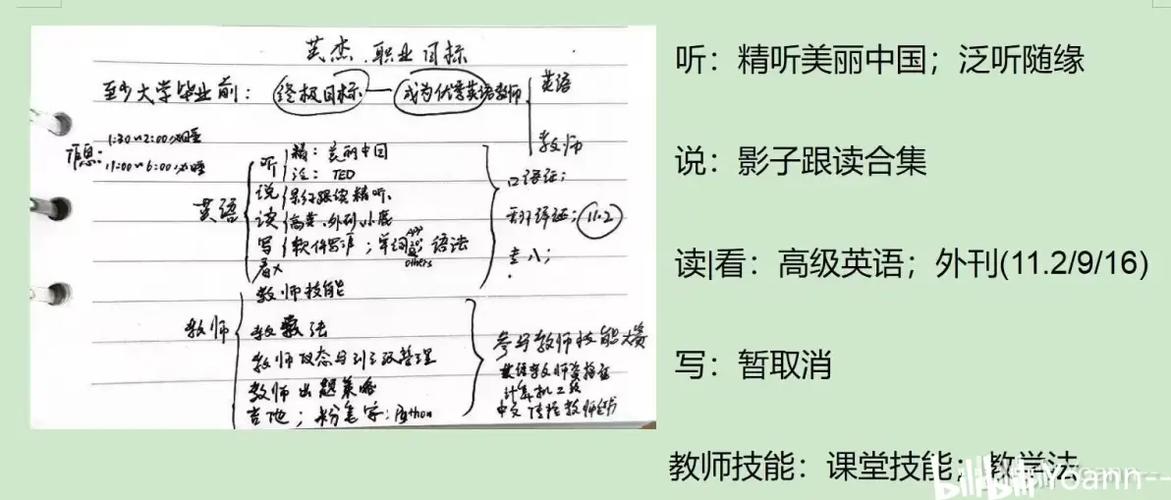 英杰.职业目标
至少大学毕业前：终极目标—成为优秀英语教师
英语
教师
作息：1:30~2:00必睡
11:00~6:00必睡
英语
听
精：美丽中国
泛：TED
说 影子跟读精听、
读 高英、外刊小度
写 软件写作；单词 语法
APP
others
看
口语证；
翻译证；11.2
专八；
教师
教师技能
教学法
教师
教师出题策略
吉他；粉笔字；Python
参与教师技能大赛
英语学教师资格证
计算机二级
中文 教师证书
听：精听美丽中国；泛听随缘
说：影子跟读合集
读|看：高级英语；外刊(11.2/9/16)
写：暂取消
教师技能：课堂技能；教学法
bilibili Yoann--